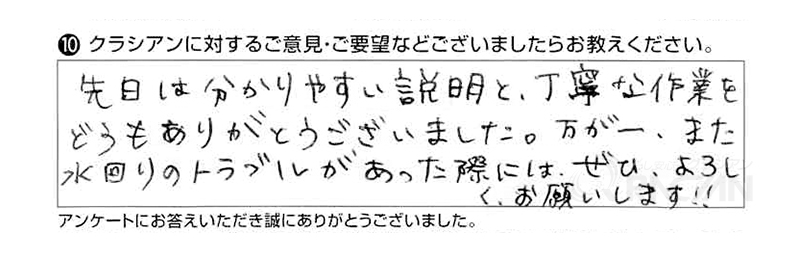 ⑩ クラシアンに対するご意見・ご要望などございましたらお教えください。
先日は分かりやすい説明と、丁寧な作業を
どうもありがとうございました。万が一、また
水回りのトラブルがあった際には、ぜひ、よろし
く、お願いします!!
アンケートにお答えいただき誠にありがとうございました。